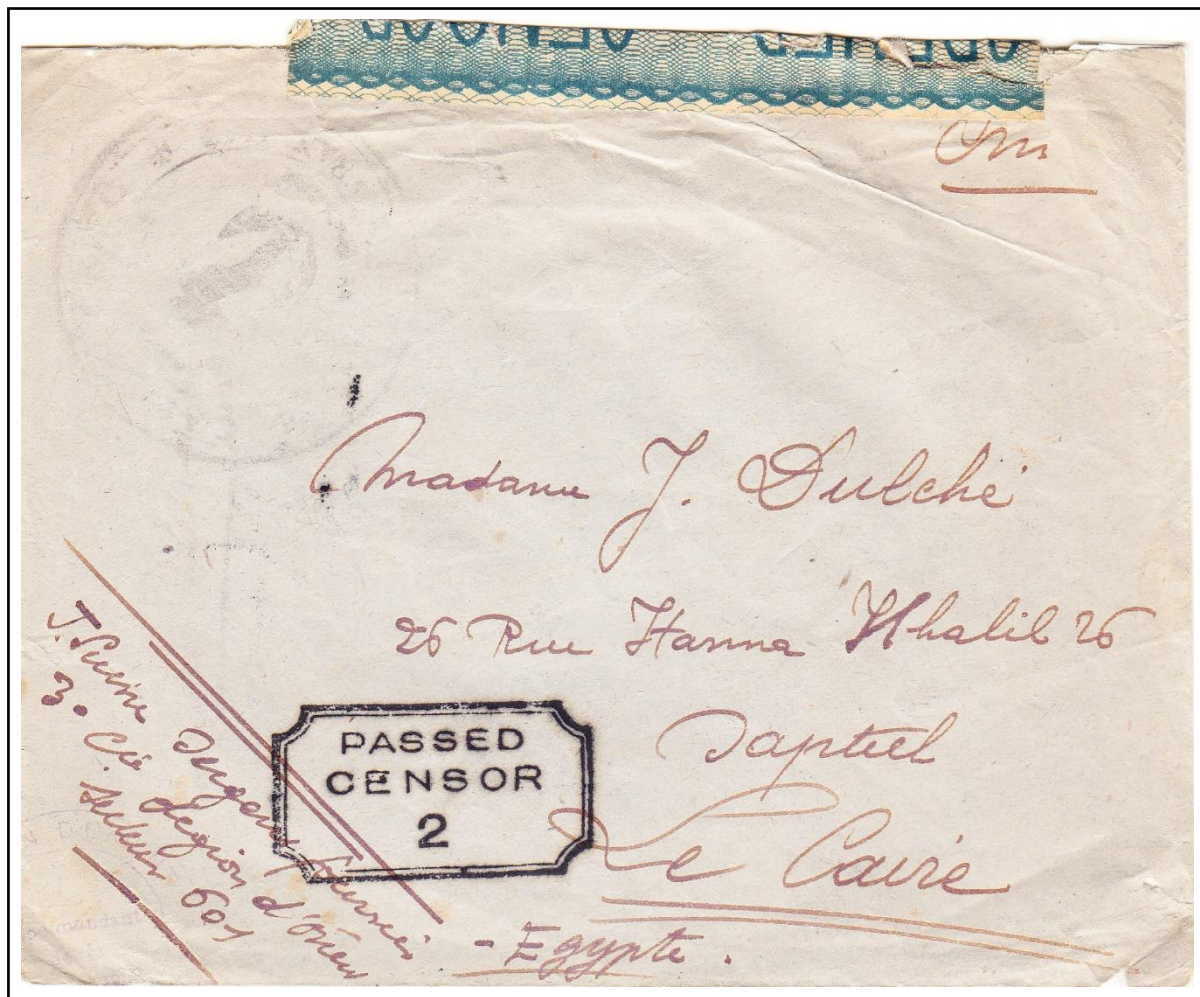 OPENED CENSOR
Madame J. Dulché
26 Rue Hanna Khalil 26
Daptul
Le Caire
- Egypte.
PASSED
CENSOR
2
J.
3e Cie Légion d'Orient
Secteur 601